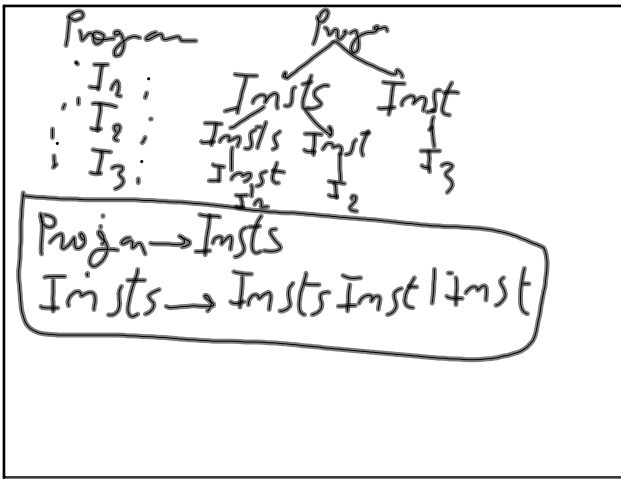 Program Progr
I1 Insts Inst
I2 Insts Inst
I3 Inst I2 I3
I1
Progran → Insts
Insts → Insts Inst | Inst